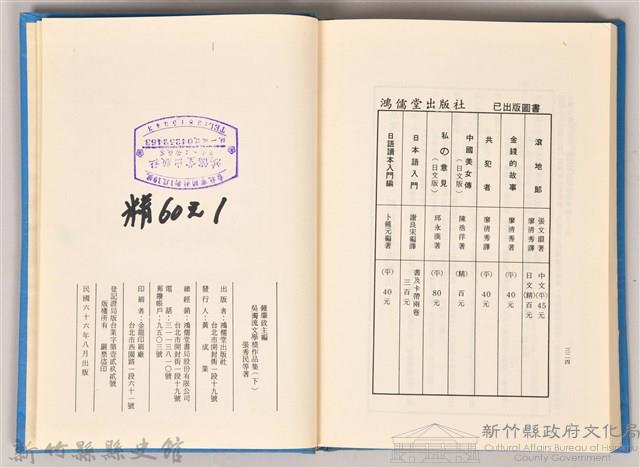 鴻儒堂出版社 已出版圖書
滾地郎 張文環著 廖清秀譯 中文(平)45元 日文(精)百元
金錢的故事 廖清秀著 (平)40元
共犯者 廖清秀譯 (平)40元
中國美女傳(日文版) 陳浩洋著 (精)百元
私の意見(日文版) 邱永漢著 (平)80元
日本語入門 謝良宋編譯 書及卡帶兩卷 三百元
日語讀本入門編 卜鍾元編著 (平)40元
三三四
精60元1
鍾肇政主編
吳濁流文學獎作品集(下)
張秀民等著
出版者:鴻儒堂出版社
台北市開封街一段十九號
發行人:黃成業
總經銷:鴻儒堂書局股份有限公司
台北市開封街一段十九號
電話:三一一三八一〇號
郵撥帳戶:九五〇三號
印刷者:金龍印刷廠
台北市西園路一段六十一號
登記證局版台業字第壹貳玖貳號
版權所有 翻禁盜印
民國六十六年八月出版
新竹縣縣史館
新竹縣政府文化局
Cultural Affairs Bureau of Hsinchu
County Government